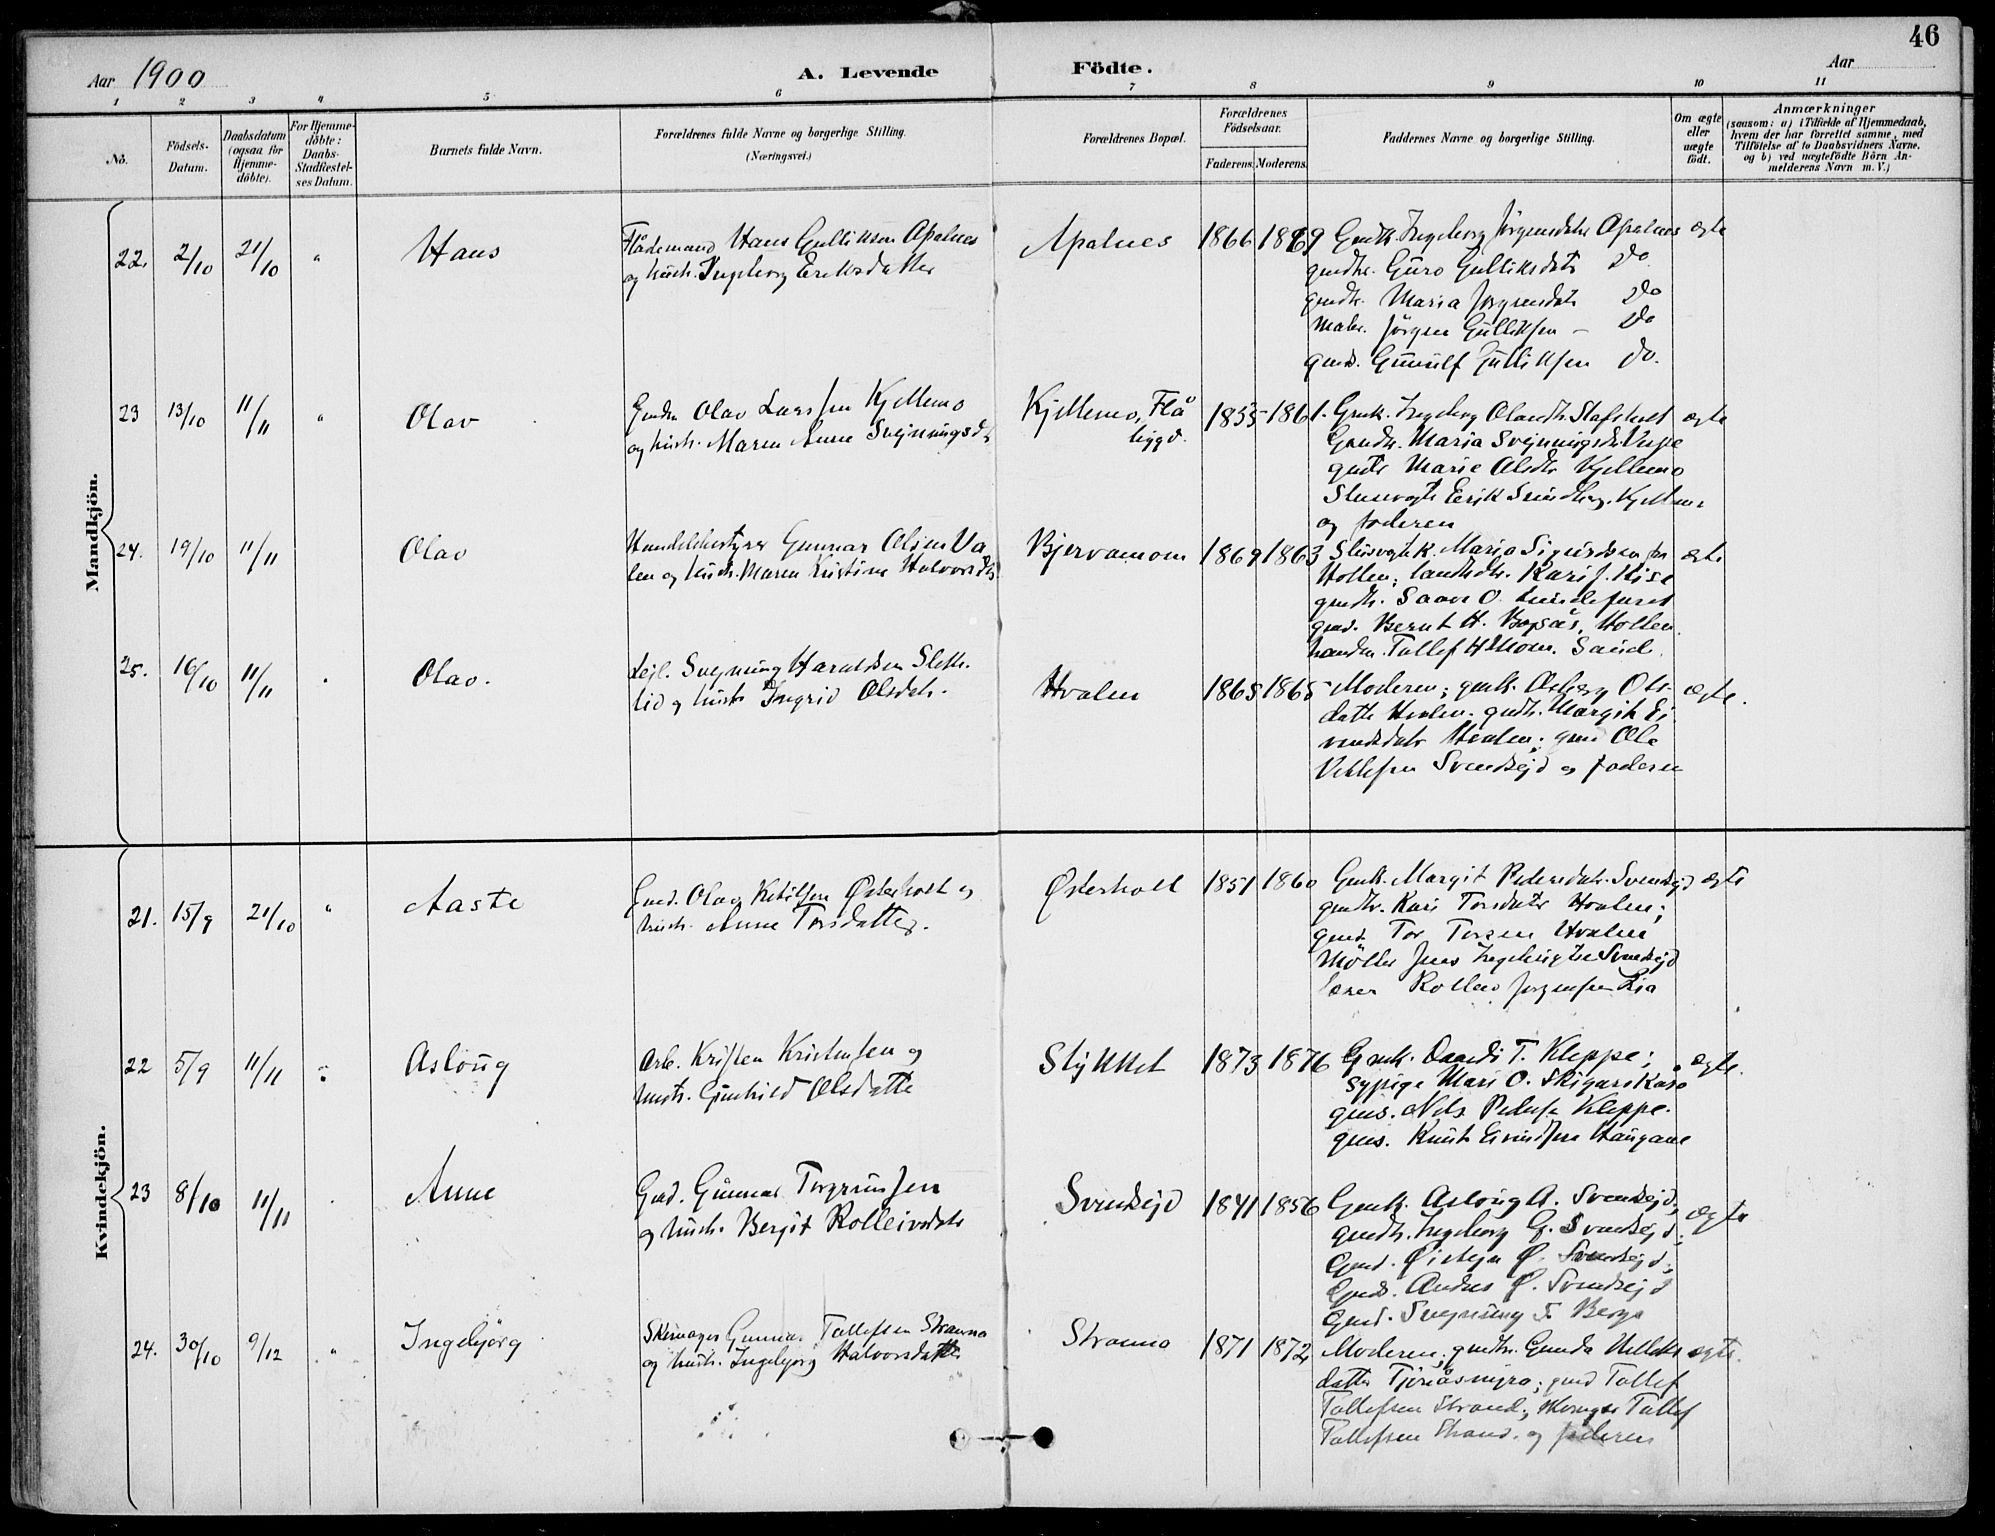 46
Aar 1900
A. Levende Födte.
Aar
1 2 3 4 5 6 7 8 9 10 11
No.
Födsels-Datum.
Daabsdatum (ogsaa for Hjemme-döbte).
For Hjemme-döbte: Daabs-Stadfæstel-ses Datum.
Barnets fulde Navn.
Forældrenes fulde Navne og borgerlige Stilling.
(Næringsvei.)
Forældrenes Bopæl.
Forældrenes Födselsaar.
Faderens. Moderens.
Faddernes Navne og borgerlige Stilling.
Om ægte eller uægte födt.
Anmærkninger
(saasom: a) i Tilfælde af Hjemmedaab,
hvem der har forrettet samme, med
Tilföielse af to Daabsvidners Navne,
og b) ved uægtefödte Börn An-
melderens Navn m. V.)
Mandkjön.
22. 2/10 21/10 " Hans
Flådemand Hans Gulliksen Apalnes
og hustr. Ingeborg Eriksdatter
Apalnes 1866 1869
Gmdk. Ingeborg Jørgensdatr Apalnes
gmdtr. Guro Gulliksdatr Do
gmdtr. Maria Jørgensdatr Do
Maler. Jörgen Gulliksen – Do
gmds. Gunulf Gulliksen do.
ægte
23 13/10 11/11 " Olav
Gmdm Olav Larssen Kjellemo
og hustr. Maren Anne Svejnungsdt
Kjellemo, Flå
liggd.
1855 1861.
Gmk. Ingeborg Olavdtr.
Gmdtr. Maria Svejnungsdtr
gmdtr Marie Olsdtr Kjellemo
Slusevogte Erik Kjellemo
og faderen
ægte
24. 19/10 11/11 Olav
Handelsbestyrer Gunnar Olsen Va
len og hustr. Maren Kristine Halvorsdtr
Bjervamoen 1869 1863
Slusvogtk. Maria Sigurdsen
Hollen; landhdtr. Kari J. Kise
gmdtr. O.
gmd. Bernt H. Hollen
handm. Tallef H. Sand.
ægte
25. 16/10 11/11 . Olav.
Lejl. Svejnung Haraldsen Slett.
lid og hustr Ingrid Olsdatr.
Hvalen 1865 1865
Moderen; gmk. Asberg Ols-
datter Hvalen. gmdtr. Margit Ei
vindsdatr Hvalen; gmd Ole
Vetlesen Svendsejd og faderen
ægte.
Kvindekjön.
21. 15/9 21/10 " Aaste
Gmd. Olav Ketilsen Østerholt og
hustr. Anne Torsdatter.
Østerholt 1851 1860
Gmk. Margit Pedersdatr. Svendsejd
gmdtr. Kari Torsdatr Hvalen;
gmd. Tor Torsen Hvalen
Møller Jens Svendsejd
Rollev Jørgensen Lia
ægte
22 5/9 11/11 Asloug
Arb. Kristen Kristensen og
hustr. Gunhild Olsdatte
Stykket 1873 1876
Gmk. T. Kleppe;
sypige Mari O.
gms. Nils Peders Kleppe.
gms. Knut Eivindsen Haugane
ægte.
23 8/10 11/11 . Anne
Gmd. Gunnar Torgrimsen
og hustr. Bergit Rolleivsdatr
Svendsejd 1841 1856
Gmk. Asloug A. Svendsejd;
gmdtr. Ingeborg G. Svendsejd;
Gmd. Øistejn Ø. Svendsejd;
Gmds. Andres Ø. Svendsejd
Gmd. Svejnung
ægte
24. 30/10 9/12 " Ingebjörg
Skomager Gunnar Tallefsen Stranna
og hustr. Ingebjorg Halvorsdatter
Stranna 1871 1872
Moderen; gmdtr. Gunda
datter Tjønåsmyra; gmd Tallef
Tallefsen Strand; Tallef
Tallefsen Strand. og faderen
ægte.